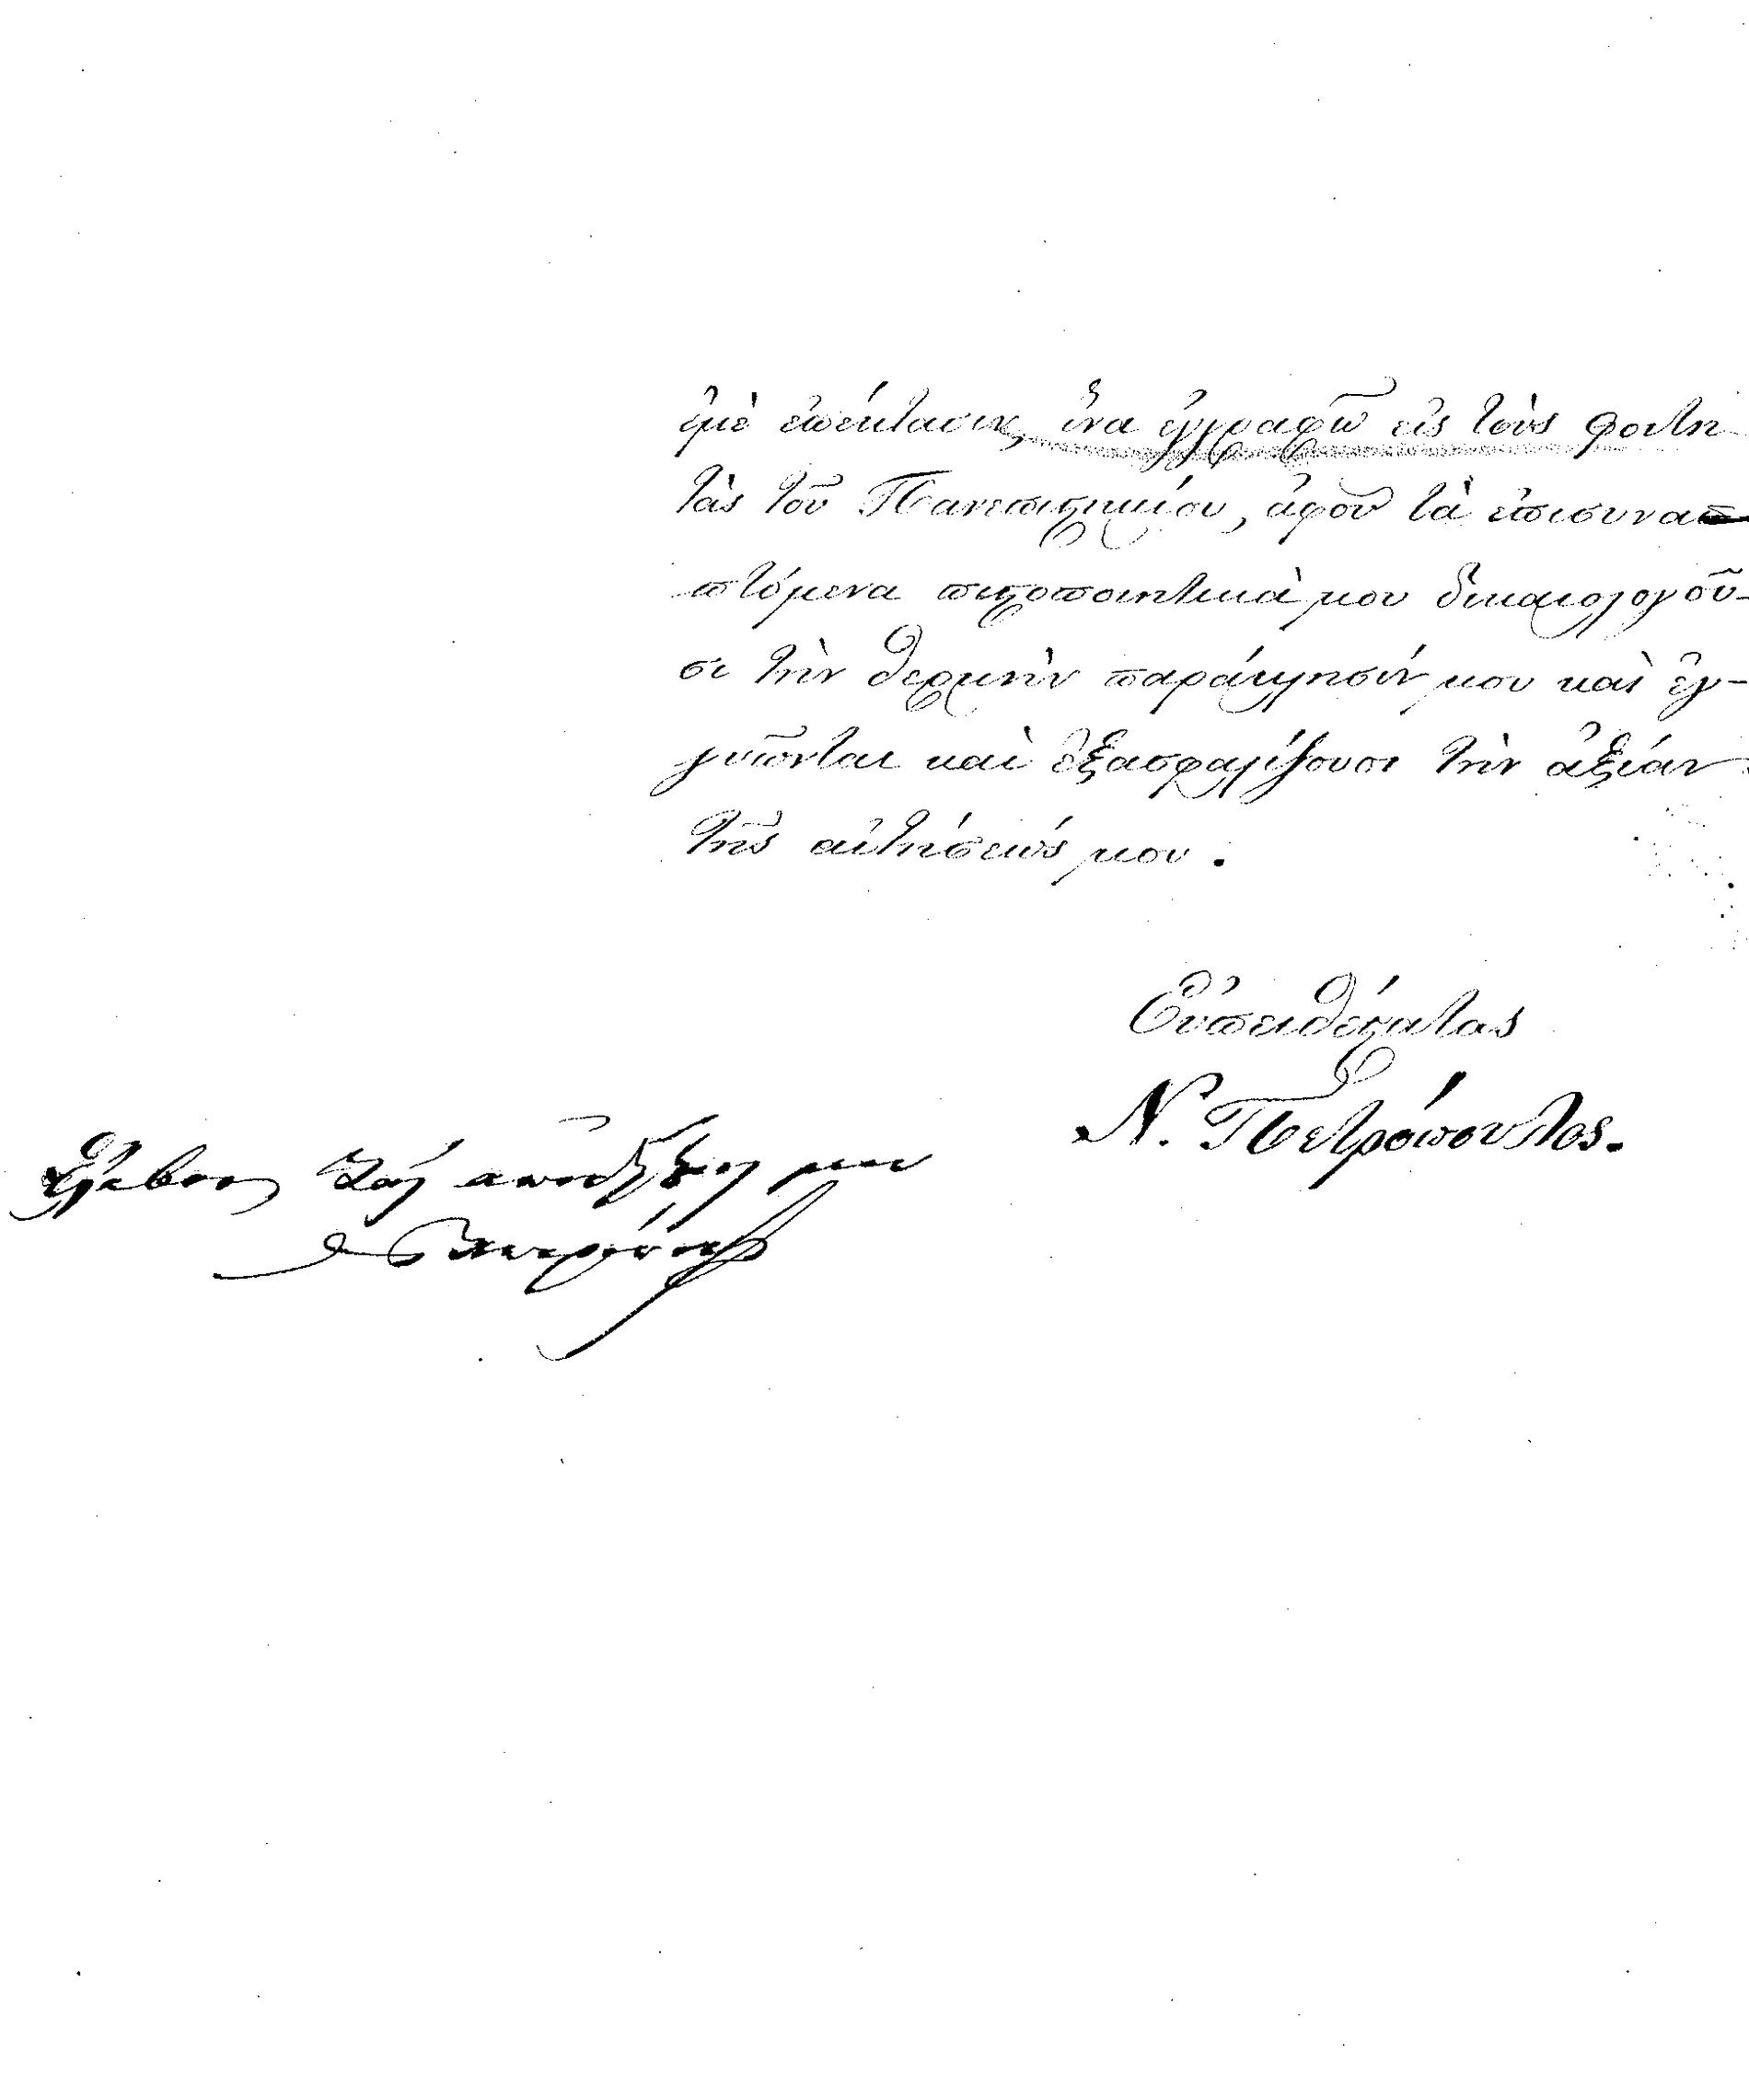 ἐμὲ ἐπέκτασιν, ἵνα ἐγγραφῶ εἰς τοὺς φοιτη
τὰς τοῦ Πανεπιστημίου, ἀφοῦ τὰ ἐπισυναπ
πτόμενα πιστοποιητικά μου δικαιολογοῦ-
σι τὴν θερμὴν παράκλησίν μου καὶ ἐγ-
γυῶνται καὶ ἐξασφαλίζουσι τὴν ἀξίαν
τῆς αἰτήσεώς μου.
Εὐπειθέστατος
Ν. Πετρόπουλος.
Ἔλαβον τὰς ἀποδείξεις μου